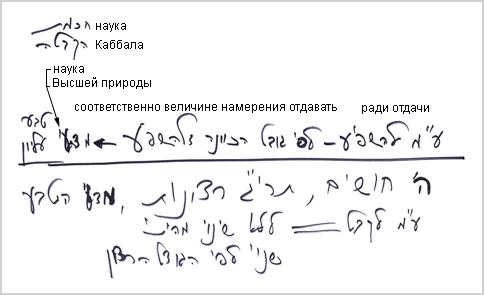 חכמת наука
הקבלה Каббала
наука
Высшей природы
соответственно величине намерения отдавать ради отдачи
ע"מ להשפיע – לפי גודל הכוונה דלהשפיע ← מדעי טבע עליון
ה' חושים, תרי"ג רצונות, מדעי הטבע
ע"מ לקבל = ללא שינוי
שינוי לפי הגודל הרצון